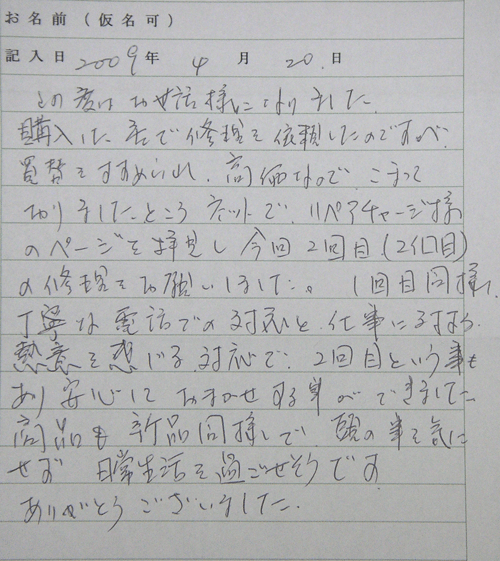 お名前(仮名可)
記入日 2009年 4月 20.日
この度は お世話様になりました。
購入した店で修理を依頼したのですが、
買替をすすめられ、高価なので、こまって
おりましたところ ネットで、リペアチャージ様
のページを拝見し 今回2回目(2個目)
の修理をお願いしました。 1回目同様、
丁寧な電話での対応と、仕事に対する
熱意を感じる対応で、2回目という事も
あり 安心して おまかせする事ができました
商品も 新品同様で、頭の事を気に
せず 日常生活を過ごせそうです
ありがとう ございました.